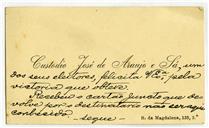 Custodio José de Araujo e Sá, um
dos seus eleitores, felicita V. Exa., pela
victoria que obteve.
Recebeu o cartão juncto que de-
volve por o destinatario não ser aqui
conhecido.
-segue-
R. da Magdalena, 133, 2.º